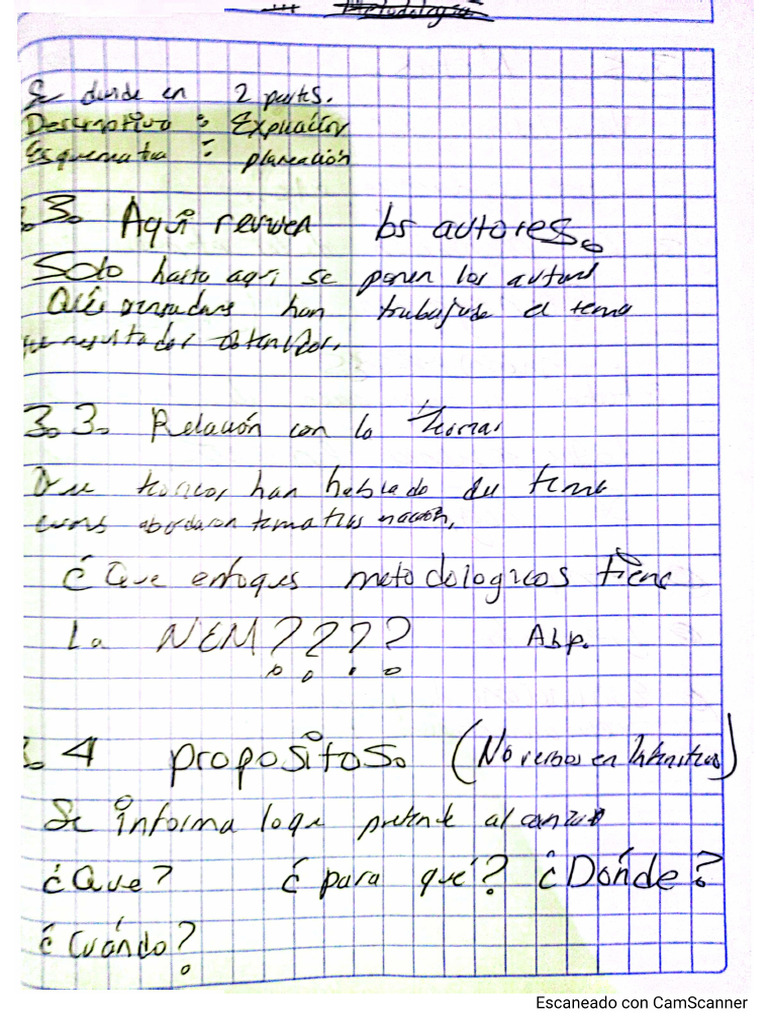 III Metodología
Se divide en 2 partes.
Descriptiva : Explicación
Esquematica : planeación
.3. Aqui reviven los autores.
Solo hasta aqui se ponen los autores
Qué han trabajado el tema
resultados obtenidos.
3.3. Relación con lo teorias
Que teoricos han hablado del tema
abordaron tematicas
¿Que enfoques metodologicos tiene
La NEM???? Abp.
.4 propositos. (No verbos en Infinitivos)
Se informa lo que pretende alcanzar
¿Que? ¿para qué? ¿Dónde?
¿Cuándo?
Escaneado con CamScanner